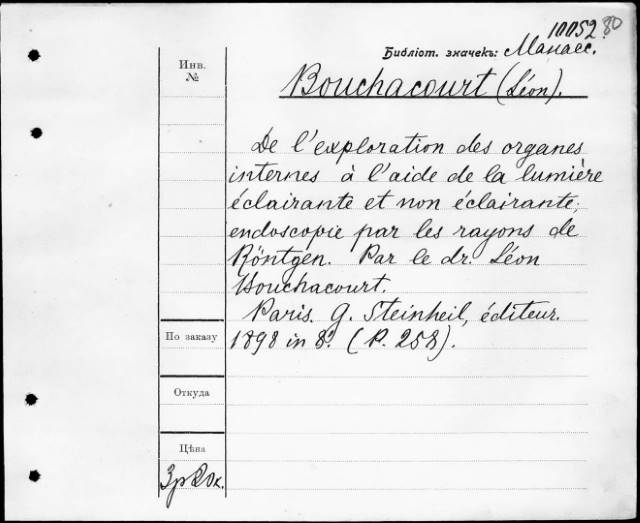 10052 80
Библіот. значекъ: Манаес.
Инв.
№
Bouchacourt (Léon).
De l'exploration des organes
internes à l'aide de la lumière
éclairante et non éclairante;
endoscopie par les rayons de
Röntgen. Par le dr. Léon
Bouchacourt.
Paris. G. Steinheil, éditeur.
По заказу
1898 in 8º. (P. 258).
Откуда
Цѣна
3р 20к.